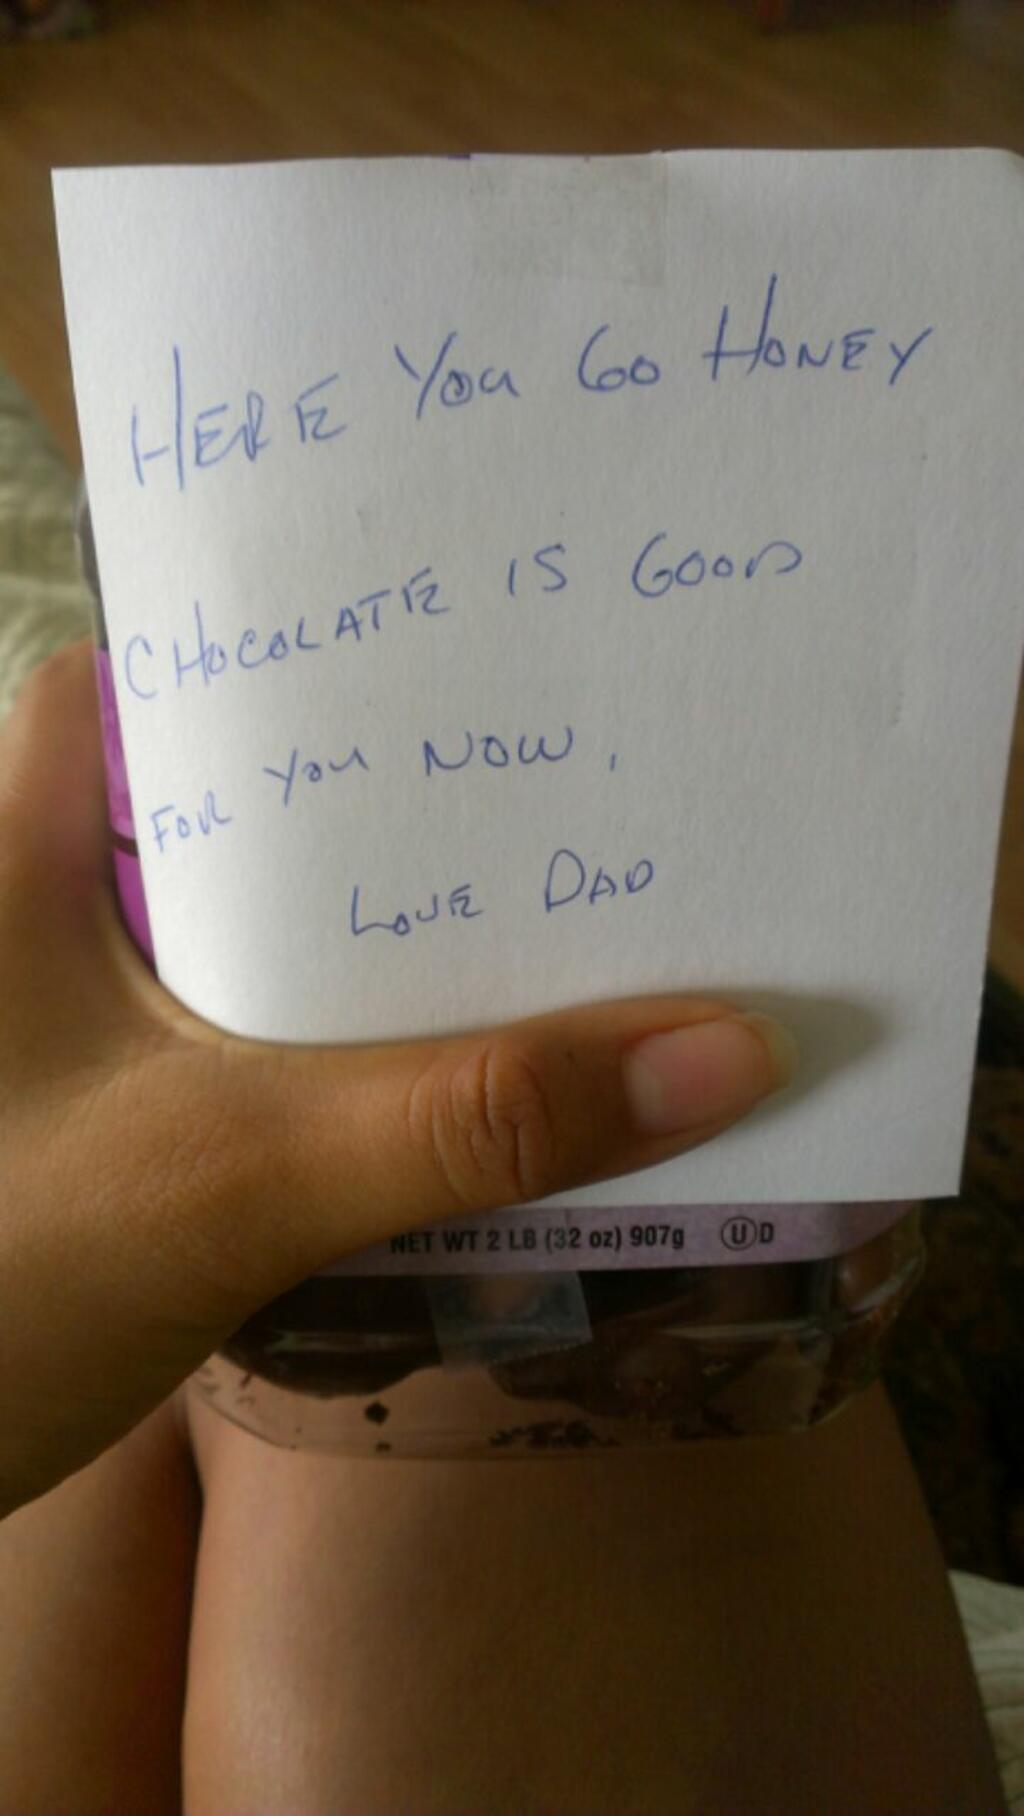 HERE YOU GO HONEY
CHOCOLATE IS GOOD
FOR YOU NOW,
LOVE DAD
NET WT 2 LB (32 oz) 907g ⓊD